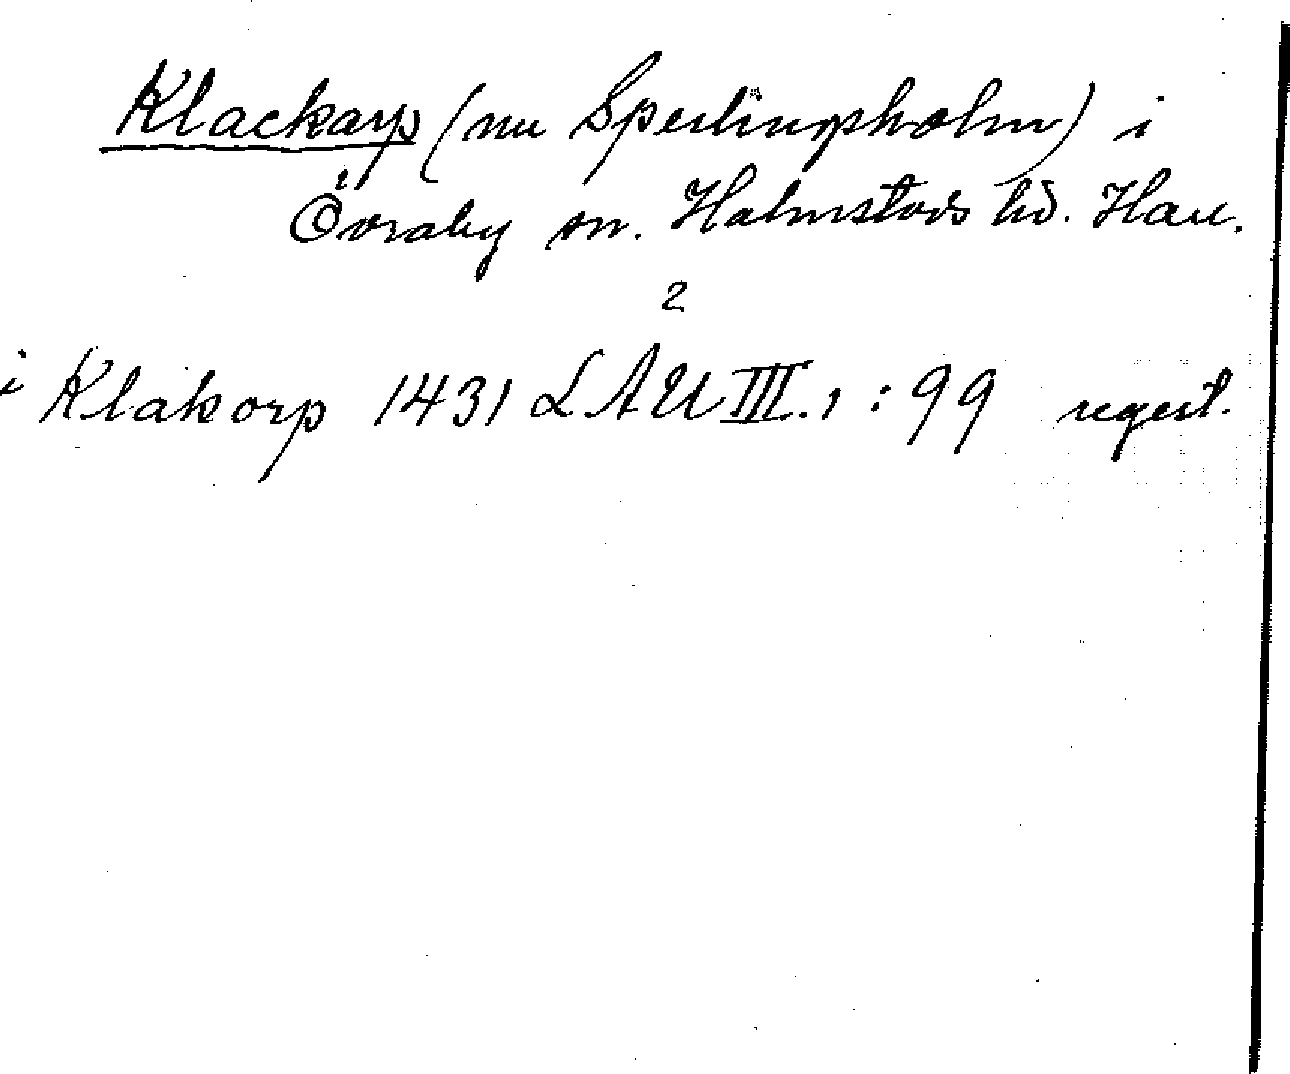 Klackarp (nu Sperlingsholm) i
Övraby sn. Halmstads hd. Hall.
2
i Klakorp 1431 LAU III.1:99 regest.